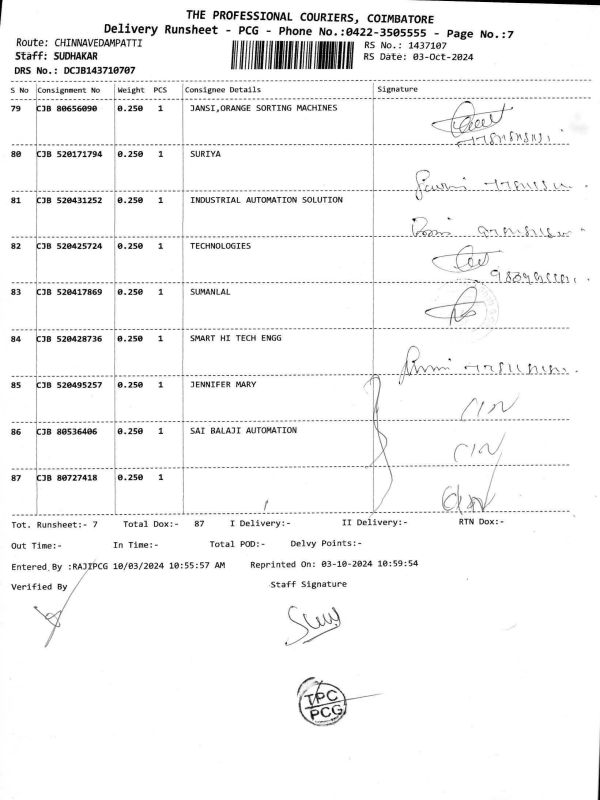 THE PROFESSIONAL COURIERS, COIMBATORE
Delivery Runsheet - PCG - Phone No.:0422-3505555 - Page No.:7
Route: CHINNAVEDAMPATTI
RS No.: 1437107
Staff: SUDHAKAR
RS Date: 03-Oct-2024
DRS No.: DCJB143710707
S No Consignment No Weight PCS Consignee Details Signature
79 CJB 80656090 0.250 1 JANSI,ORANGE SORTING MACHINES
80 CJB 520171794 0.250 1 SURIYA
81 CJB 520431252 0.250 1 INDUSTRIAL AUTOMATION SOLUTION
82 CJB 520425724 0.250 1 TECHNOLOGIES
83 CJB 520417869 0.250 1 SUMANLAL
84 CJB 520428736 0.250 1 SMART HI TECH ENGG
85 CJB 520495257 0.250 1 JENNIFER MARY
86 CJB 80536406 0.250 1 SAI BALAJI AUTOMATION
87 CJB 80727418 0.250 1
Tot. Runsheet:- 7 Total Dox:- 87 I Delivery:- II Delivery:- RTN Dox:-
Out Time:- In Time:- Total POD:- Delvy Points:-
Entered By :RAJIPCG 10/03/2024 10:55:57 AM Reprinted On: 03-10-2024 10:59:54
Verified By Staff Signature
TPC
PCG